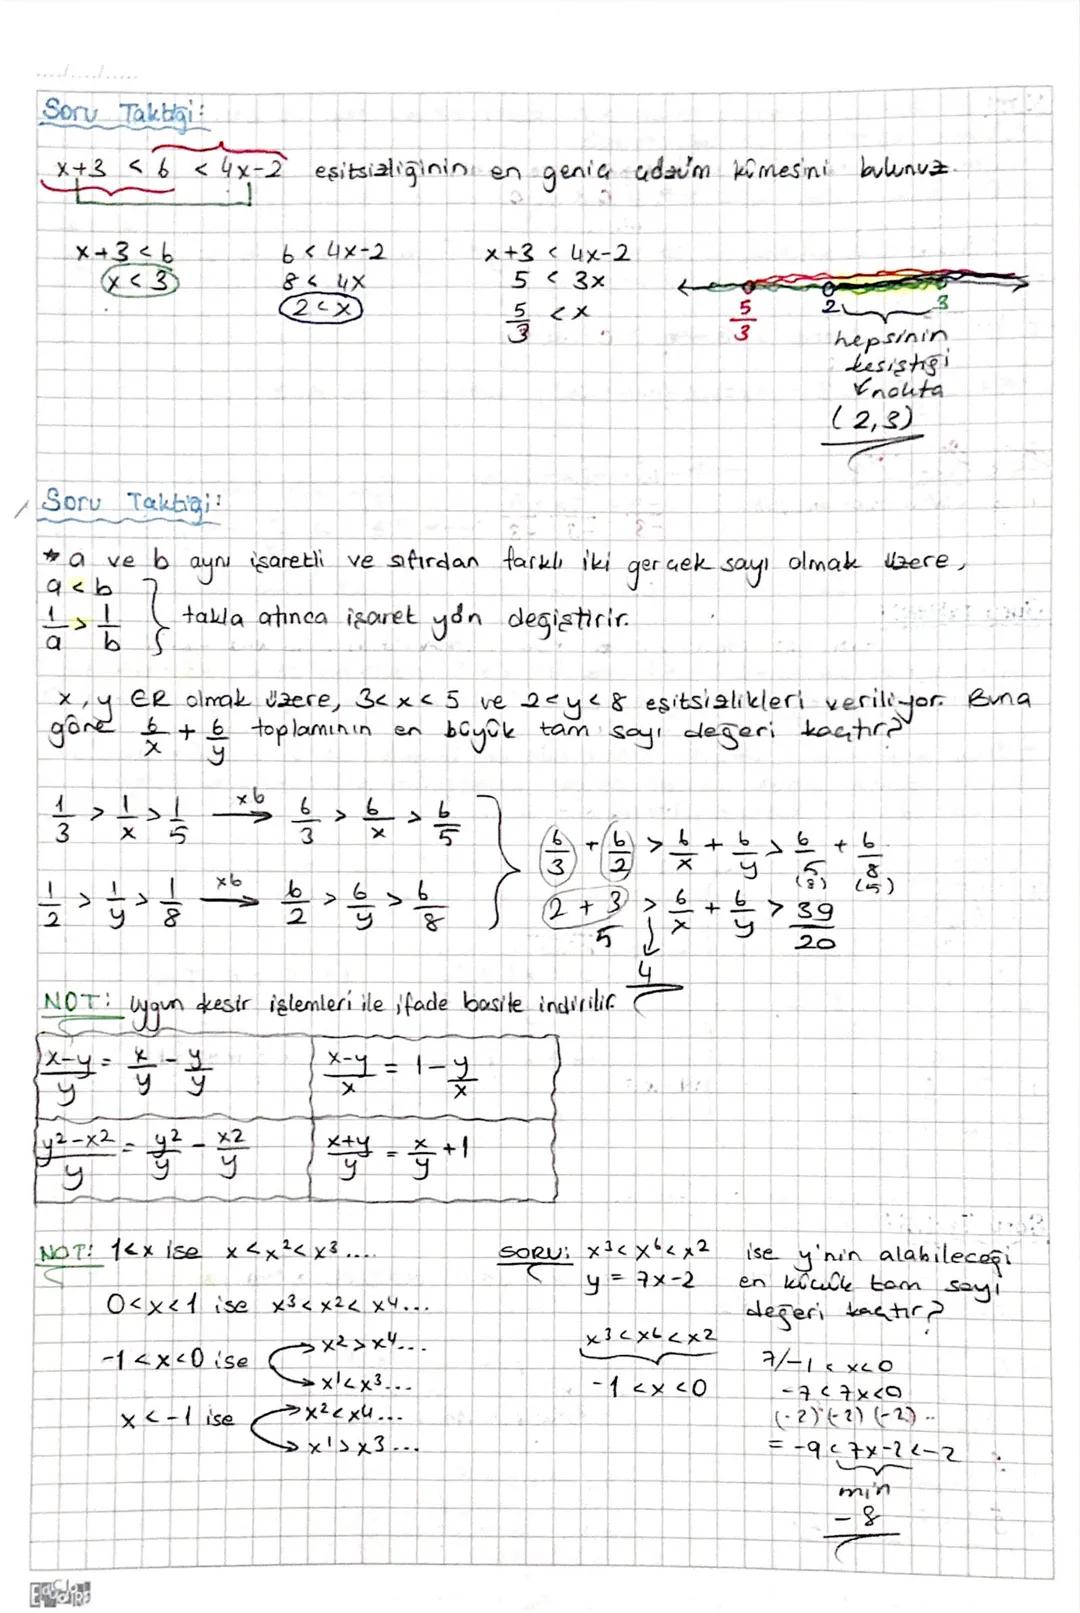 Soru Taktiği:
x+3 < 6 < 4x-2 eşitsizliğinin en geniş çözüm kümesini bulunuz.
x+3<6 6<4x-2 x+3 < 4x-2
x<3 8<4x 5 < 3x
2<x 5/3 <x
5/3 2 3
hepsinin
kesiştiği
nokta
(2,3)
Soru Taktiği:
* a ve b aynı işaretli ve sıfırdan farklı iki gerçek sayı olmak üzere,
a<b
1/a > 1/b } takla atınca işaret yön değiştirir.
x, y ER olmak üzere, 3<x<5 ve 2<y<8 eşitsizlikleri veriliyor. Buna
göre 6/x + 6/y toplamının en büyük tam sayı değeri kaçtır?
1/3 > 1/x > 1/5 x6→ 6/3 > 6/x > 6/5
1/2 > 1/y > 1/8 x6→ 6/2 > 6/y > 6/8
6/3 + 6/2 > 6/x + 6/y > 6/5 + 6/8
(8) (5)
2+3 > 6/x + 6/y > 39/20
5
4
NOT: Uygun kesir işlemleri ile ifade basite indirilir.
x-y/y = x/y - y/y x-y/x = 1 - y/x
y²-x²/y = y²/y - x2/y x+y/y = x/y + 1
NOT: 1<x ise x<x²<x³....
0<x<1 ise x³<x²<x4...
-1<x<0 ise → x²>x⁴...
→ x¹<x³...
x<-1 ise → x²<x4...
→ x¹>x3...
SORU: x³<x⁶<x² ise y'nin alabileceği
y = 7x-2 en küçük tam sayı
değeri kaçtır?
x³<x6<x2
-1<x<0
7/-1<x<0
-7<7x<0
(-2) (-2) (-2)..
= -9<7x-2<-2
min
-8